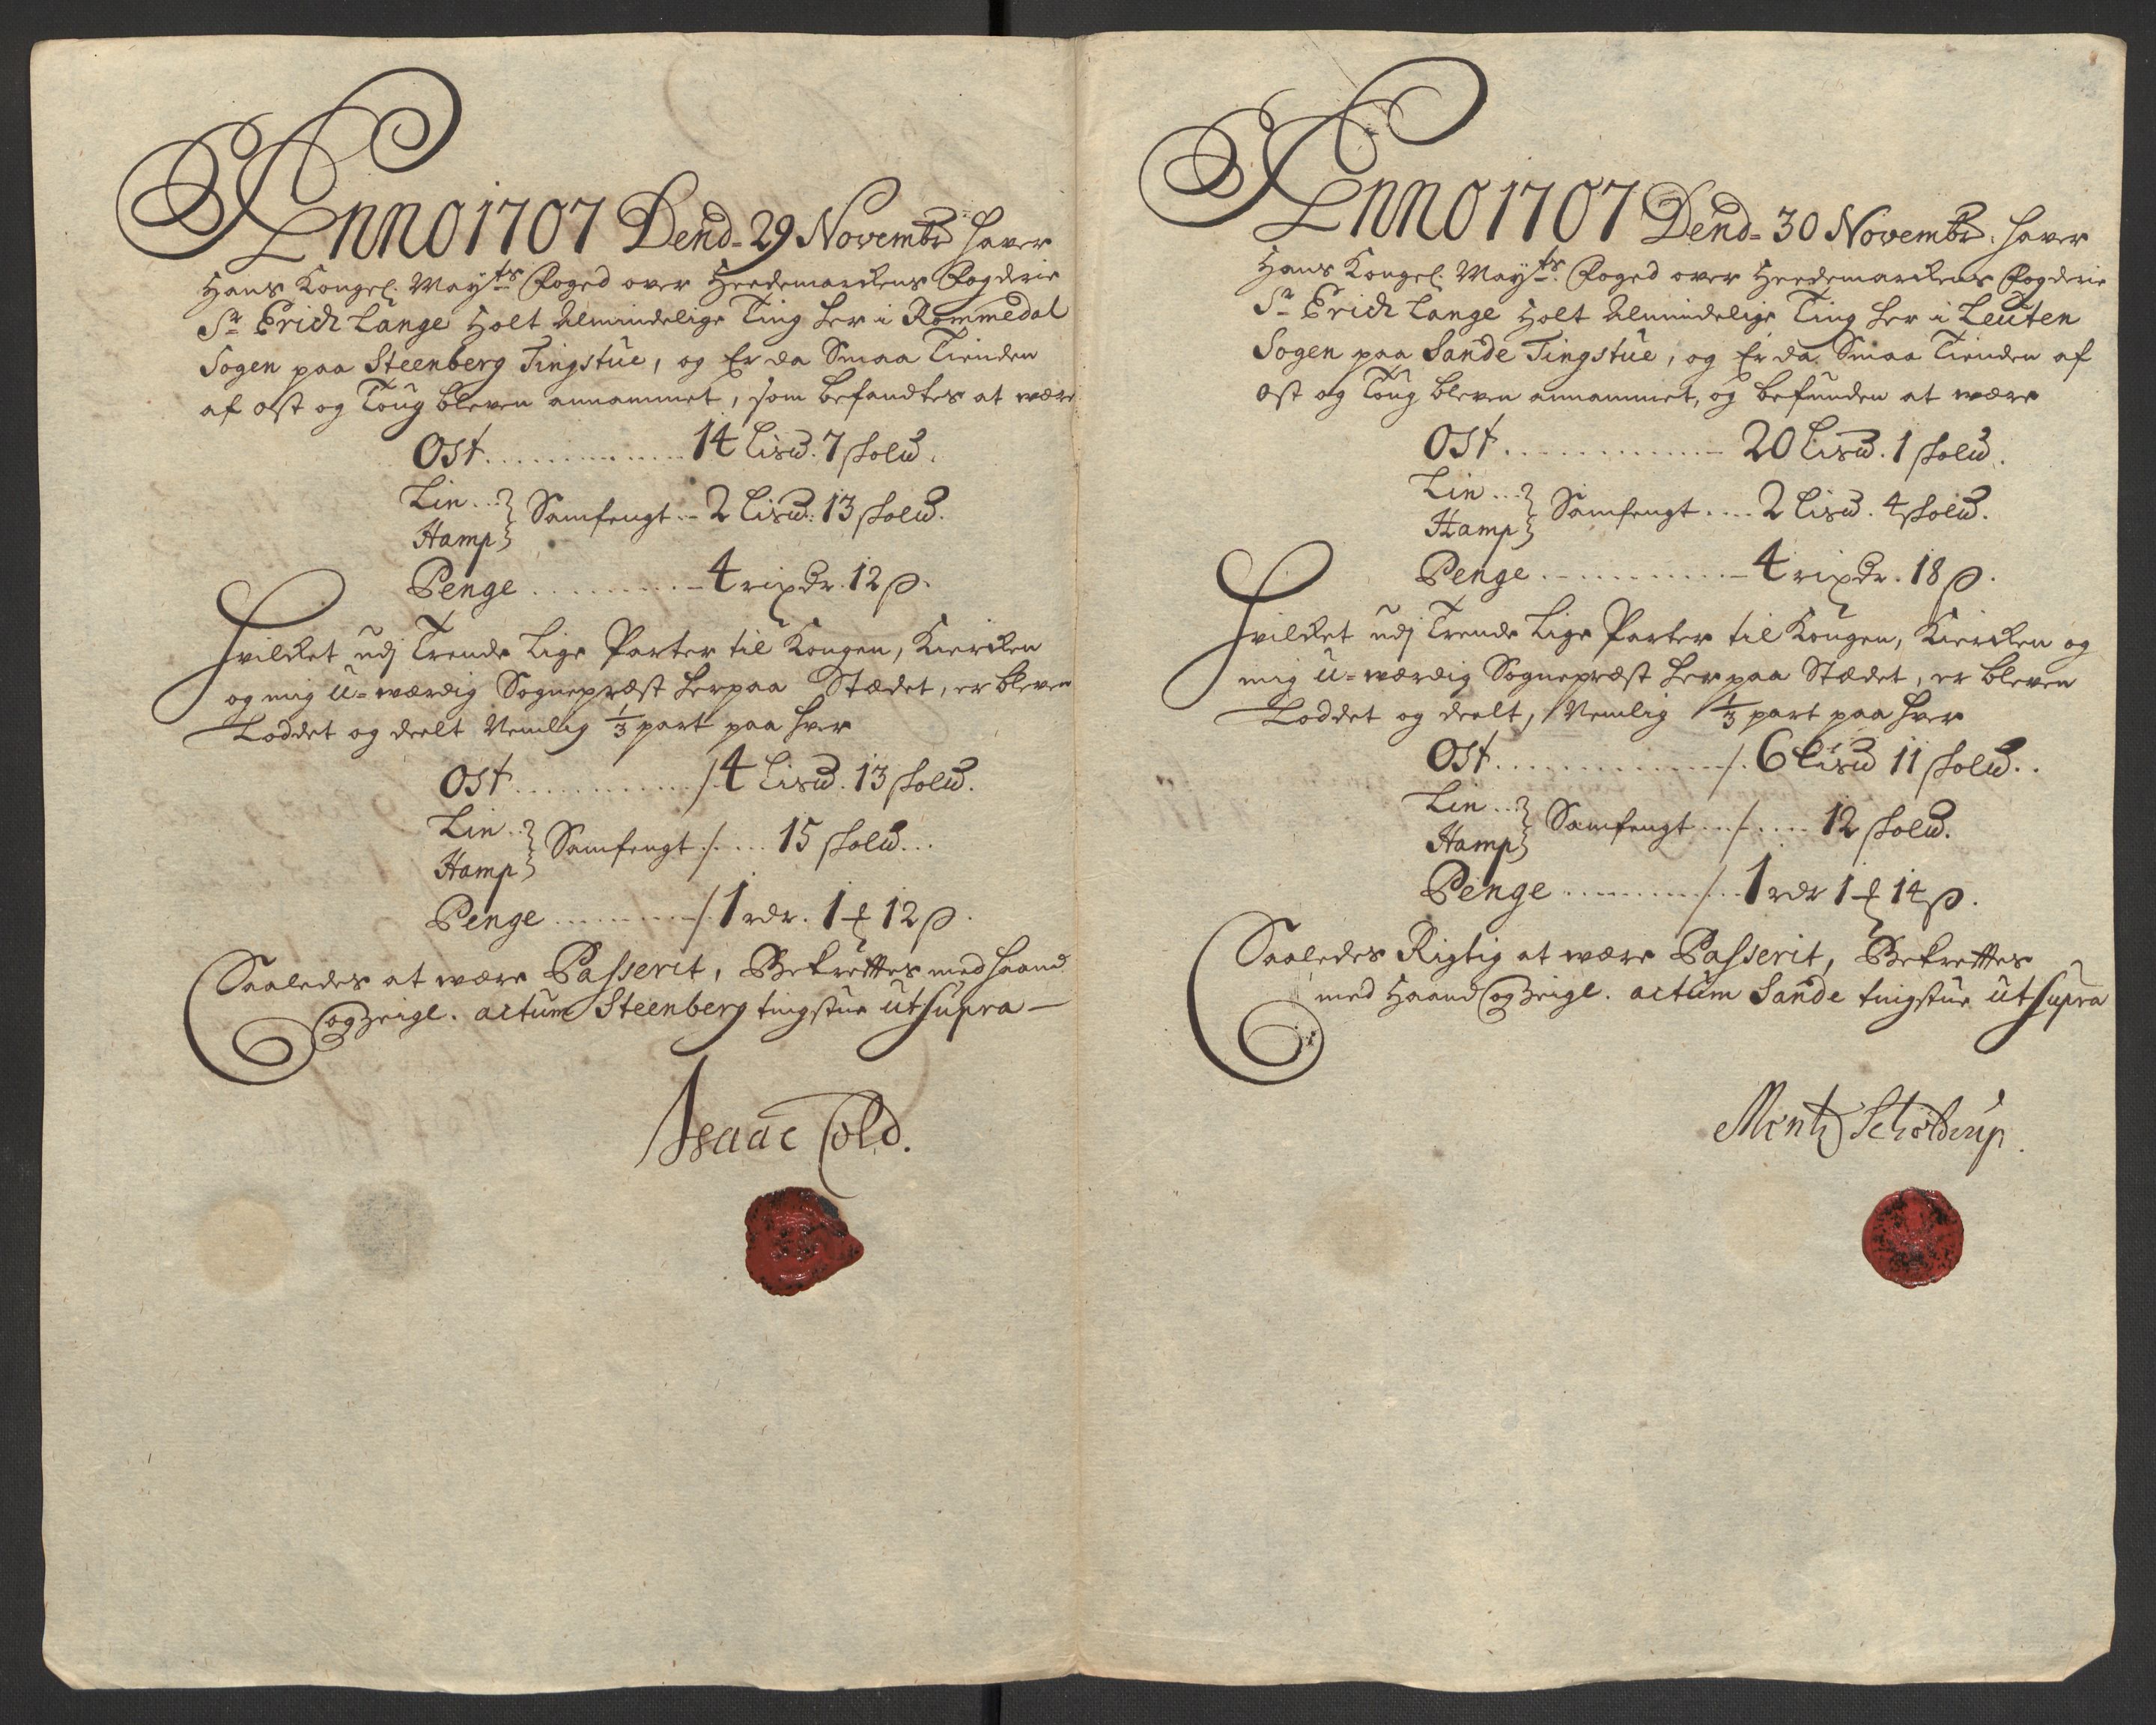 Anno 1707 Dend. 29 Novembr. hafver
Hans Kongel. Mayts. Foged over Heedemarckens Fogderie
Sr. Erich Lange Holt Almindelige Ting her i Rommedal
Sogen paa Steenberg Tingstue, og Er da Smaa Tienden
af Ost og Toug bleven annammet, som befandtes at være
Ost ............ 14 Lisd. 7 skold.
Lin ... } Samfengt .. 2 Lisd. 13 skold.
Hamp }
Penge ......... 4 rixdr. 12 s.
Hvilcket udj Trende Lige Parter til Kongen, Kiercken
og mig U=værdig Sognepræst herpaa Stædet, er bleven
Loddet og deelt Nemlig 1/3 part paa hver
Ost ............ / 4 Lisd. 13 skold.
Lin .. } Samfengt ./. ... 15 skold...
Hamp }
Penge ......... / 1 rdr. 1 ₰ 12 s.
Saaledes at være Passerit, Bekreftes med haand
og Zeigl. actum Steenberg tingstue ut supra —
Isaac Cold.
Anno 1707 Dend. 30 Novembr. hafver
Hans Kongel. Mayts. Foged over Heedemarckens Fogderie
Sr. Erich Lange Holt Almindelige Ting her i Leuten
Sogen paa Sande Tingstue, og Er da Smaa Tienden af
Ost og Toug bleven annammet, og befunden at være
Ost ............ 20 Lisd. 1 skold.
Lin ... } Samfengt .... 2 Lisd. 4 skold.
Hamp }
Penge ......... 4 rixdr. 18 s.
Hvilcket udj Trende Lige Parter til Kongen, Kiercken og
mig U=værdig Sognepræst her paa Stædet, er bleven
Loddet og deelt, Nemlig 1/3 part paa hver
Ost ............ /. 6 Lisd 11 skold..
Lin ... } Samfengt ... /. .... 12 skold.
Hamp }
Penge ......... / .. 1 rdr 1 ₰ 14 s.
Saaledes Rigtig at være Passerit, Bekreftes
med Haand og Zeigl. actum Sande tingstue ut supra
Mentz Schiølderup.